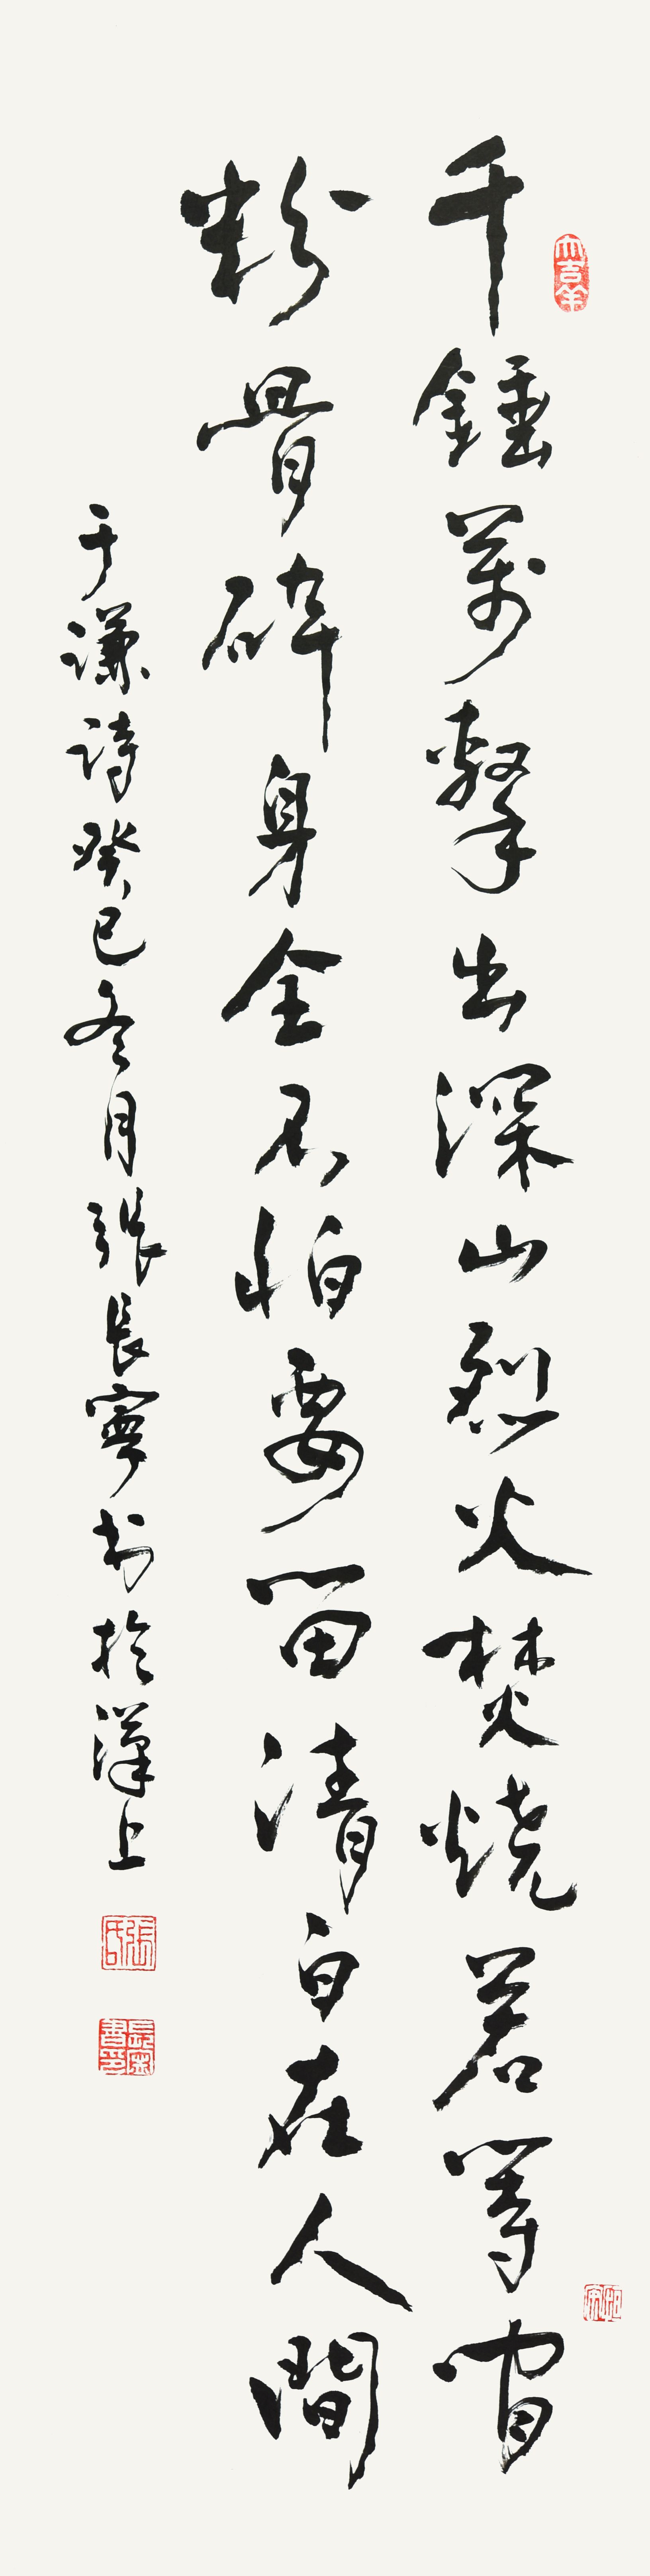 千錘萬擊出深山烈火焚燒若等閒
粉骨碎身全不怕要留清白在人間
于謙詩癸巳冬月張長寧书於漢上
大吉羊
張氏
長寧書印